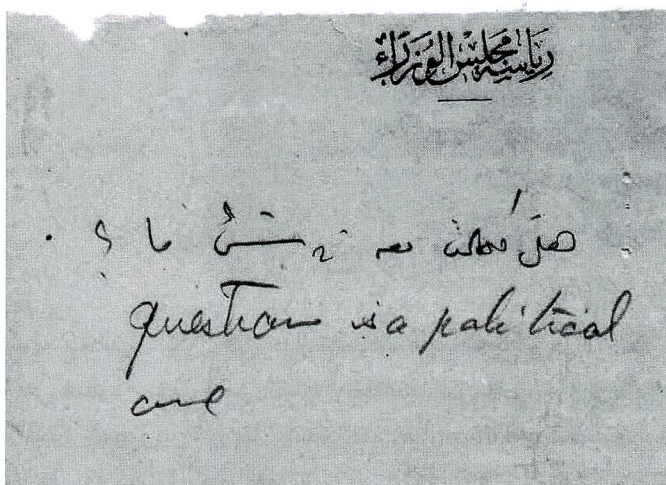 رياسة مجلس الوزراء
هل معه شئ ما ؟
question is a political
one